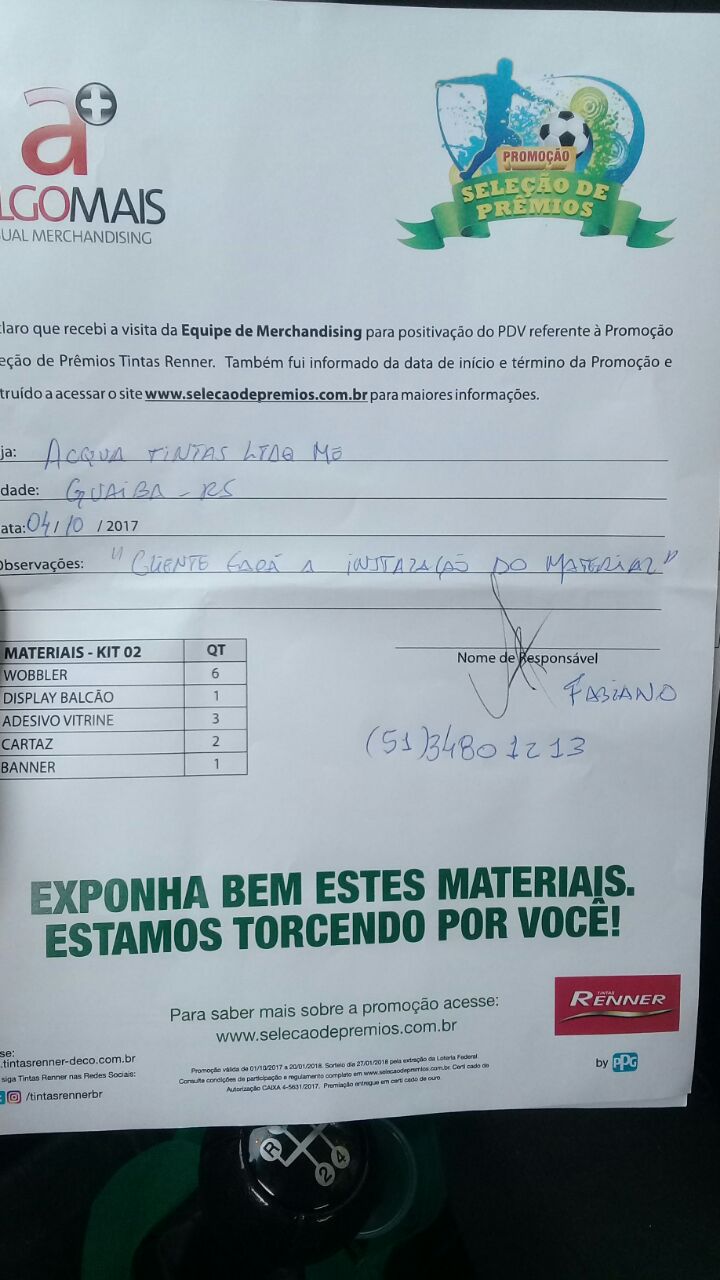 a+
LGOMAIS
UAL MERCHANDISING
PROMOÇÃO
SELEÇÃO DE
PRÊMIOS
claro que recebi a visita da Equipe de Merchandising para positivação do PDV referente à Promoção
eção de Prêmios Tintas Renner. Também fui informado da data de início e término da Promoção e
truído a acessar o site www.selecaodepremios.com.br para maiores informações.
ja: ACQUA TINTAS LTDA ME
dade: GUAIBA - RS
ata: 04/10 / 2017
Observações: "CLIENTE FARÁ A INSTALAÇÃO DO MATERIAL"
MATERIAIS - KIT 02 QT
WOBBLER 6
DISPLAY BALCÃO 1
ADESIVO VITRINE 3
CARTAZ 2
BANNER 1
Nome de Responsável
FABIANO
(51)34801213
EXPONHA BEM ESTES MATERIAIS.
ESTAMOS TORCENDO POR VOCÊ!
Para saber mais sobre a promoção acesse:
www.selecaodepremios.com.br
TINTAS
RENNER
by PPG
se:
.tintasrenner-deco.com.br
siga Tintas Renner nas Redes Sociais:
/tintasrennerbr
Promoção válida de 01/10/2017 a 20/01/2018. Sorteio dia 27/01/2018 pela extração da Loteria Federal.
Consulte condições de participação e regulamento completo em www.selecaodepremios.com.br. Certi cado de
Autorização CAIXA 4-5631/2017. Premiação entregue em certi cado de ouro.
R
2 4